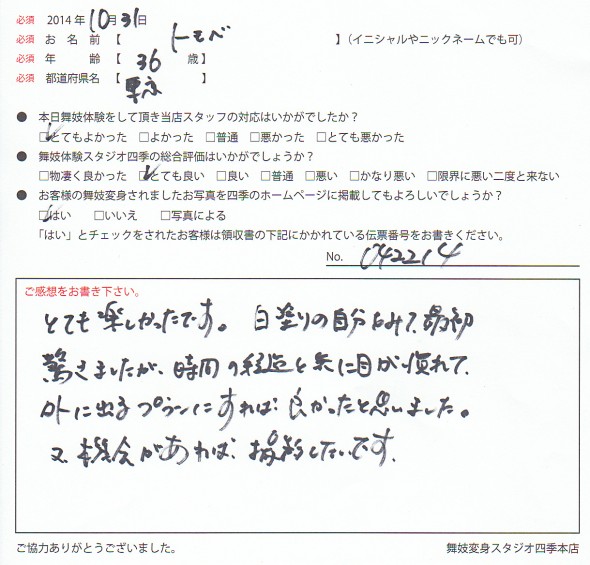 必須 2014年10月31日
必須 お名前【 トモベ 】(イニシャルやニックネームでも可)
必須 年齢【 36 歳】
必須 都道府県名【 東京 】
● 本日舞妓体験をして頂き当店スタッフの対応はいかがでしたか?
☑とてもよかった □よかった □普通 □悪かった □とても悪かった
● 舞妓体験スタジオ四季の総合評価はいかがでしょうか?
□物凄く良かった ☑とても良い □良い □普通 □悪い □かなり悪い □限界に悪い二度と来ない
● お客様の舞妓変身されましたお写真を四季のホームページに掲載してもよろしいでしょうか?
☑はい □いいえ □写真による
「はい」とチェックをされたお客様は領収書の下記にかかれている伝票番号をお書きください。
No. 042214
ご感想をお書き下さい。
とても楽しかったです。白塗りの自分をみて、最初
驚きましたが、時間の経過と共に目が慣れて、
外に出るプランにすれば良かったと思いました。
又、機会があれば、お願いしたいです。
ご協力ありがとうございました。 舞妓変身スタジオ四季本店